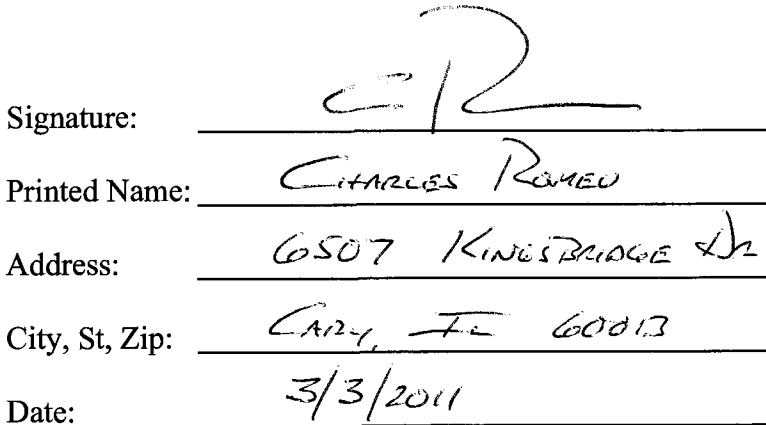 Signature: CR
Printed Name: CHARLES ROMEO
Address: 6507 KINGSBRIDGE Dr
City, St, Zip: CARY, IL 60013
Date: 3/3/2011